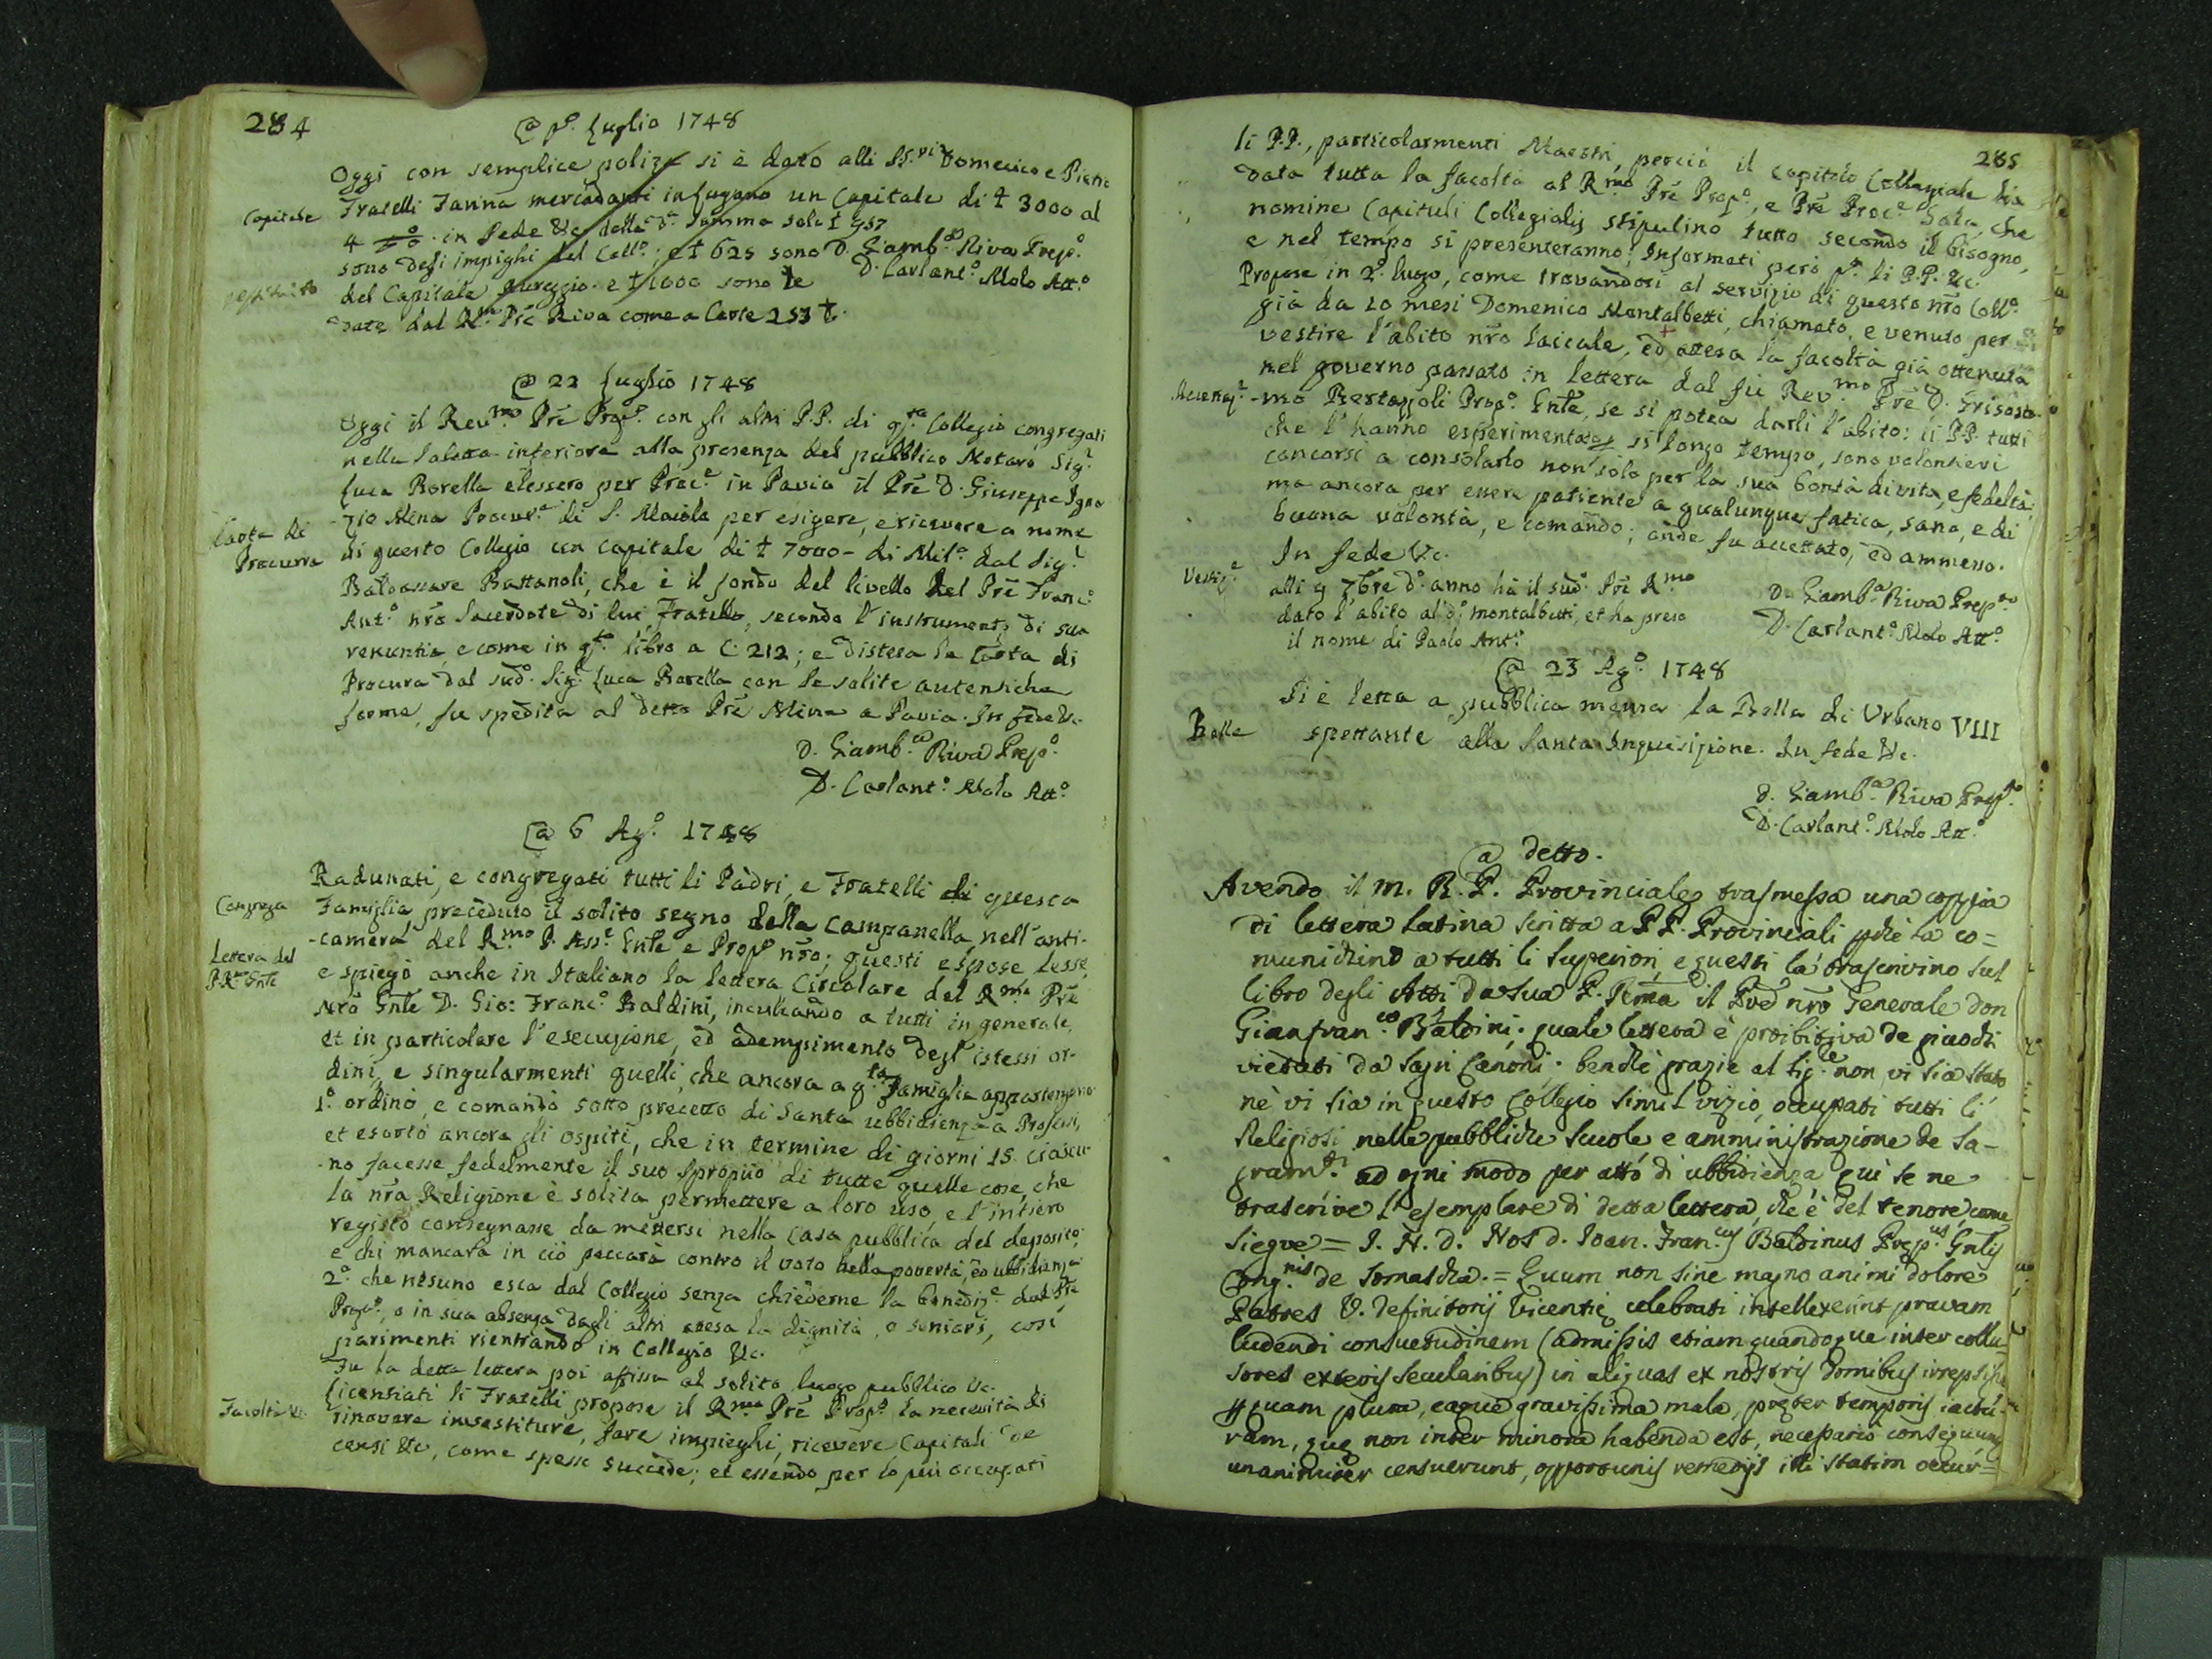 284
@ p.º Luglio 1748
Oggi con semplice poliza si è dato alli SS.ri Domenico e Pietro
Capitale
Fratelli Farina mercadanti in Lugano un Capitale di ŧ 3000 al
4 in Fede &c della d.ª somma sole ŧ 957
sono degl'impieghi del Coll.º; e ŧ 625 sono
D. Giamb.ª Riva Prep.º
del Capitale e ŧ 1000 sono te
D. Carlant.º Molo Att.º
restituito
date dal R.º Prē Riva come a Carte 253 ŧ.
@ 22 Luglio 1748
Oggi il Rev.mo Prē Prep.º con gli altri P.P. di q.sto Collegio congregati
nella Saletta inferiore alla presenza del pubblico Notaro Sig.r
Luca Borella elessero per Proc.e in Pavia il Prē D. Giuseppe Igna
Carta di
Procurra
-zio Mina Procur.e di S. Maiolo per esigere, e ricevere a nome
di questo Collegio un capitale di ŧ 7000 - di Mil.º dal Sig.r
Baldassare Bassanoli, che è il fondo del livello del Prē Franc.º
Ant.º nrō Sacerdote di lui Fratello, secondo l'instrumento di sua
renuntia, e come in q.sto libro a C. 212; e distesa la Carta di
Procura dal sud.º Sig.r Luca Borella con le solite autentiche
forme, fu spedita al detto Prē Mina a Pavia. In fede &c.
D. Giamb.ª Riva Prep.º
D. Carlant.º Molo Att.º
@ 6 Ag.º 1748
Radunati, e congregati tutti li Padri, e Fratelli di questa
Congrega
Famiglia, preceduto il solito segno della Campanella, nell'anti-
-camera del R.mo P. Ass.e Gnle e Prep.º nrō; questi espose lesse,
Lettera del
P. R.mo Gnle
e spiegò anche in Italiano la lettera Circolare del R.mo Prē
Nrō Gnle D. Gio: Franc.º Baldini, inculcando a tutti in generale,
et in particolare l'esecuzione, ed adempimento degl'istessi or-
dini, e singularmenti quelli, che ancora a q.ta Famiglia appartengono
1.º ordinò, e comandò sotto precetto di Santa ubbidienza a Professi,
et esortò ancora gli ospiti, che in termine di giorni 15 ciascu-
-no facesse fedelmente il suo spropiio di tutte quelle cose, che
la nrā Religione è solita permettere a loro uso, e l'intiero
registo consegnasse da mettersi nella Casa pubblica del deposito;
e chi mancarà in ciò peccarà contro il voto della povertà, ed ubbidienza
2.º che nesuno esca dal Collegio senza chiederne la benediz.e dal Prē
Prep.º, o in sua absenza dagli altri attesa la dignità, o seniors, così
parimenti rientrando in Collegio &c.
Fu la detta lettera poi affissa al solito luogo pubblico &c.
Facoltà &c.
Licentiati li Fratelli propose il R.mo Prē Prep.º la necessità di
rinovare investiture, fare impieghi, ricevere Capitali de
censi &c, come spesse succede; et essendo per lo più occupati
285
li P.P., particolarmenti Maestri, perciò il Capitolo Collegiale hà
data tutta la facoltà al R.mo Prē Prep.º, e Prē Proc.e Sala, che
nomine Capituli Collegialis stipulino tutto secondo il bisogno,
e nel tempo si presenteranno; Informati però p.ª li P.P. &c.
Propose in 2.º luogo, come trovandosi al servizio di questo nrō Coll.º
già da 10 mesi Domenico Montalbetti, chiamato, e venuto per
vestire l'abito nrō laicale, ed attesa la facoltà già ottenuta
nel governo passato in lettera dal fu Rev.mo Prē D. Grisosto-
Accettaz.e
-mo Bertazzoli Prep.º Gnle, se si potea darli l'abito: li P.P. tutti
che l'hanno esperimentato si longo tempo, sono volontieri
concorsi a consolarlo non solo per la sua bontà di vita, e fedeltà,
ma ancora per essere patiente a qualunque fatica, sano, e di
buona volontà, e comando; onde fu accettato, ed ammesso.
In fede &c.
Vestiz.e
alli 9 7bre d.º anno hà il sud.º Prē R.mo
D. Giamb.ª Riva Prep.to
dato l'abito al d.º montalbetti, et ha preso
D. Carlant.º Molo Att.º
il nome di Paolo Ant.º
@ 23 Ag.º 1748
Si è letta a pubblica mensa la Bolla di Urbano VIII
Bolla
spettante alla Santa Inquisizione. In fede &c.
D. Giamb.ª Riva Prep.to
D. Carlant.º Molo Att.º
@ detto.
Avendo il m. R. P. Provinciale trasmessa una coppia
di lettera latina scritta a PP. Provinciali pche la co=
munichino a tutti li Superiori, e questi la trascrivino sul
libro degli Atti da Sua P. Rma il Pre nrō Generale don
Gianfran.co Baldini; quale lettera è proibitiva de giuochi
vietati da Sagri Canoni; benchè grazie al Sig.re non vi sia stato
nè vi sia in questo Collegio simil vizio, occupati tutti li
Religiosi nelle pubbliche Scuole e amministrazione de Sa-
gram.ti ad ogni modo per atto di ubbidienza qui se ne
trascrive l'esemplare di detta lettera, che è del tenore come
siegue = I. N. D. Nos D. Ioan. Fran.cus Baldinus Prep.us Gnlis
Cong.nis de Somascha. = Quum non sine magno animi dolore
Patres V. Definitorij Vicentię celebrati intellexerint pravam
ludendi consuetudinem (admissis etiam quandoque inter collu-
sores exteris secularibus) in aliquas ex nostris domibus irrepsisse
ex quam plura, eaque gravissima mala, pręter temporis iactu-
ram, quę non inter minora habenda est, necessario consequuntur
unanimiter censuerunt, opportunis remedijs illi statim occur=